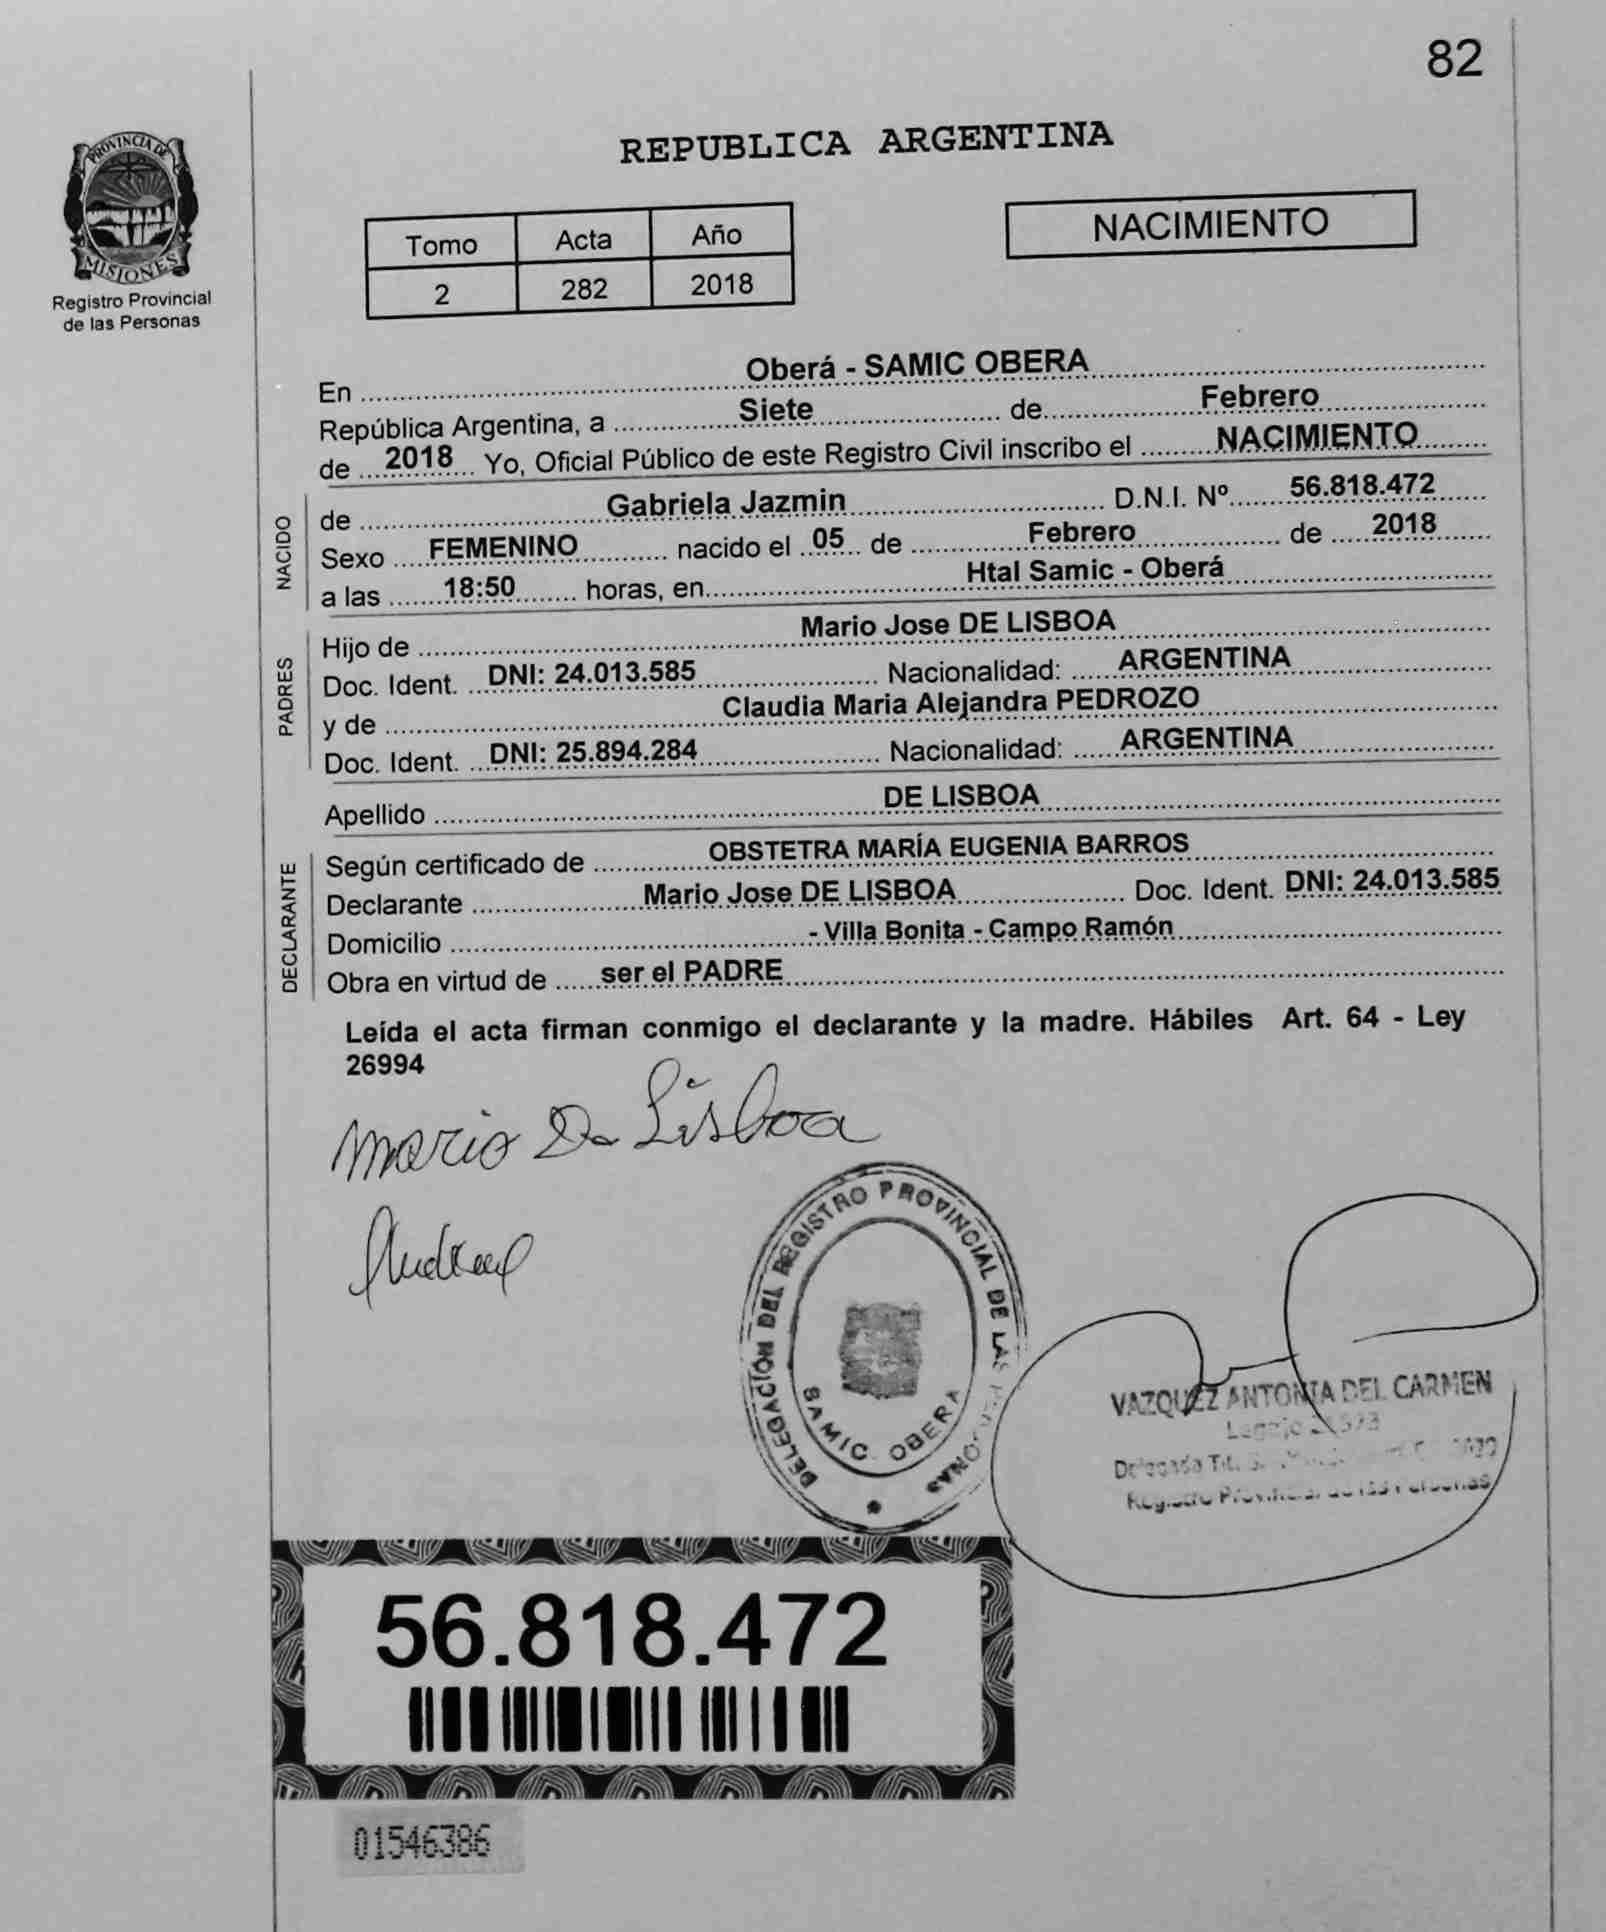 82
PROVINCIA DE
MISIONES
Registro Provincial
de las Personas
REPUBLICA ARGENTINA
Tomo Acta Año
2 282 2018
NACIMIENTO
En Oberá - SAMIC OBERA
República Argentina, a Siete de Febrero
de 2018 Yo, Oficial Público de este Registro Civil inscribo el NACIMIENTO
NACIDO
de Gabriela Jazmin D.N.I. Nº 56.818.472
Sexo FEMENINO nacido el 05 de Febrero de 2018
a las 18:50 horas, en Htal Samic - Oberá
PADRES
Hijo de Mario Jose DE LISBOA
Doc. Ident. DNI: 24.013.585 Nacionalidad: ARGENTINA
y de Claudia Maria Alejandra PEDROZO
Doc. Ident. DNI: 25.894.284 Nacionalidad: ARGENTINA
Apellido DE LISBOA
DECLARANTE
Según certificado de OBSTETRA MARÍA EUGENIA BARROS
Declarante Mario Jose DE LISBOA Doc. Ident. DNI: 24.013.585
Domicilio - Villa Bonita - Campo Ramón
Obra en virtud de ser el PADRE
Leída el acta firman conmigo el declarante y la madre. Hábiles Art. 64 - Ley
26994
Mario De Lisboa
DELEGACIÓN DEL REGISTRO PROVINCIAL DE LAS PERSONAS
SAMIC. OBERA
VAZQUEZ ANTONIA DEL CARMEN
Legajo
Delegada
Registro Provincial de las Personas
56.818.472
01546386